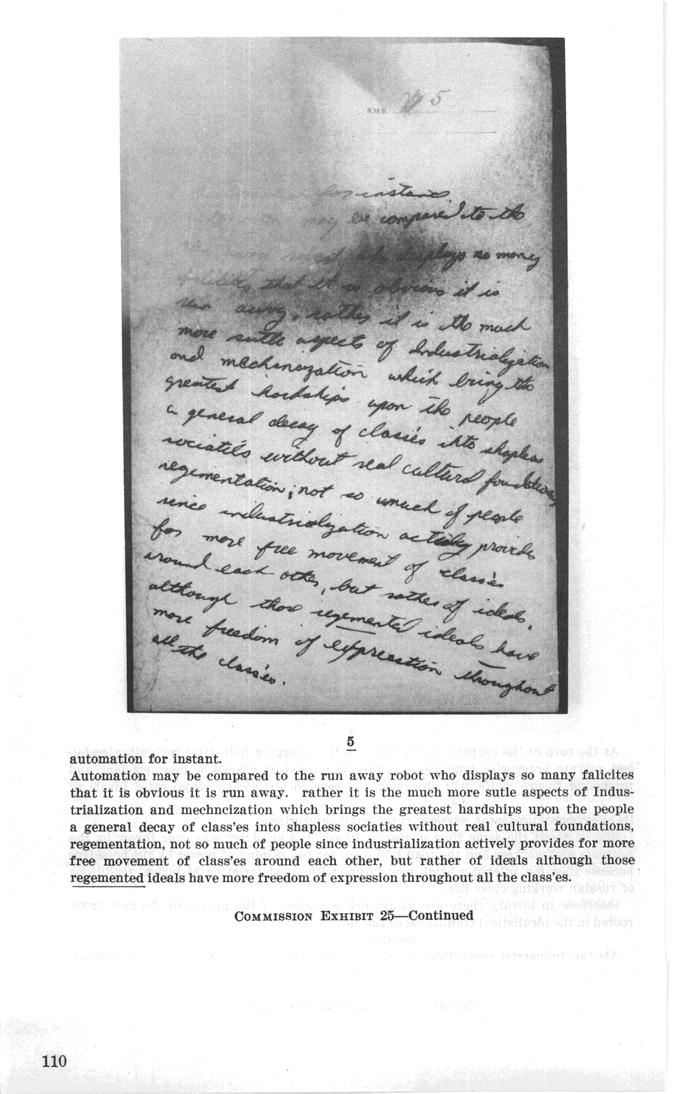 R.M.S. 5
for instant
may be compared to the
displays so many
that it is obvious it is
run away. rather it is the much
more sutle aspects of Industrialization
and mechinazation which bring the
greatest hardships upon the people
a general decay of classes into shapless
sociaties without real cultural foundations
regementation; not so much of people
since industrialization actively provides
for more free movement of class'es
around each other, but rather of ideals.
although those regemented ideals have
more freedom of expression throughout
all the class'es.
5
automation for instant.
Automation may be compared to the run away robot who displays so many falicites
that it is obvious it is run away. rather it is the much more sutle aspects of Indus-
trialization and mechncization which brings the greatest hardships upon the people
a general decay of class'es into shapless sociaties without real cultural foundations,
regementation, not so much of people since industrialization actively provides for more
free movement of class'es around each other, but rather of ideals although those
regemented ideals have more freedom of expression throughout all the class'es.
COMMISSION EXHIBIT 25—Continued
110